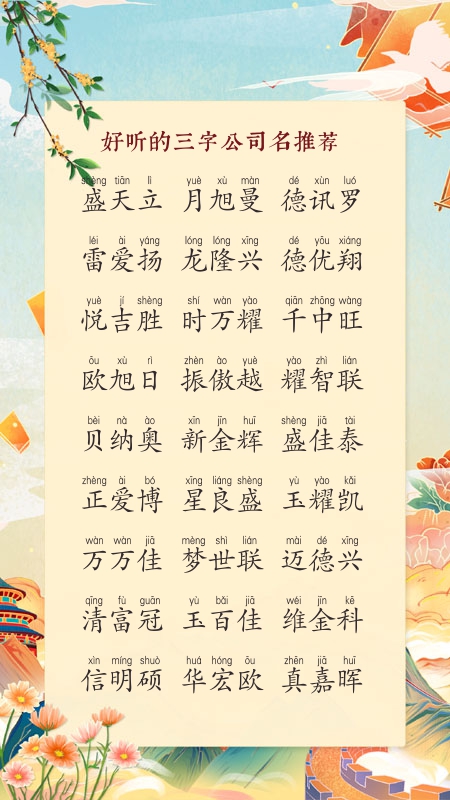 好听的三字公司名推荐
shèng tiān lì yuè xù màn dé xùn luó
盛天立 月旭曼 德讯罗
léi ài yáng lóng lóng xīng dé yōu xiáng
雷爱扬 龙隆兴 德优翔
yuè jí shèng shí wàn yào qiān zhōng wàng
悦吉胜 时万耀 千中旺
ōu xù rì zhèn ào yuè yào zhì lián
欧旭日 振傲越 耀智联
bèi nà ào xīn jīn huī shèng jiā tài
贝纳奥 新金辉 盛佳泰
zhèng ài bó xīng liáng shèng yù yào kǎi
正爱博 星良盛 玉耀凯
wàn wàn jiā mèng shì lián mài dé xīng
万万佳 梦世联 迈德兴
qīng fù guān yù bǎi jiā wéi jīn kē
清富冠 玉百佳 维金科
xìn míng shuò huá hóng ōu zhēn jiā huī
信明硕 华宏欧 真嘉晖